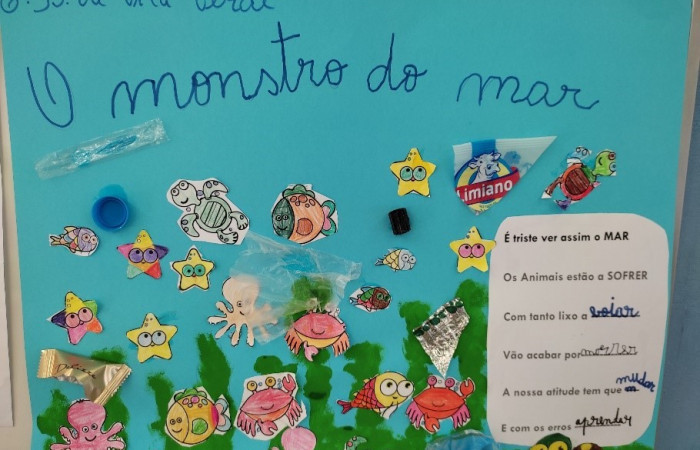 O monstro do mar
Limiano
É triste ver assim o MAR
Os Animais estão a SOFRER
Com tanto lixo a boiar
Vão acabar por morrer
A nossa atitude tem que mudar
E com os erros aprender